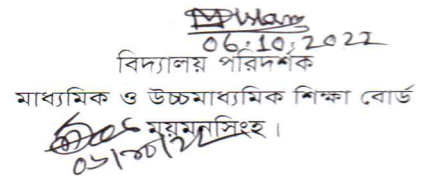 06.10.2022
বিদ্যালয় পরিদর্শক
মাধ্যমিক ও উচ্চমাধ্যমিক শিক্ষা বোর্ড
ময়মনসিংহ।